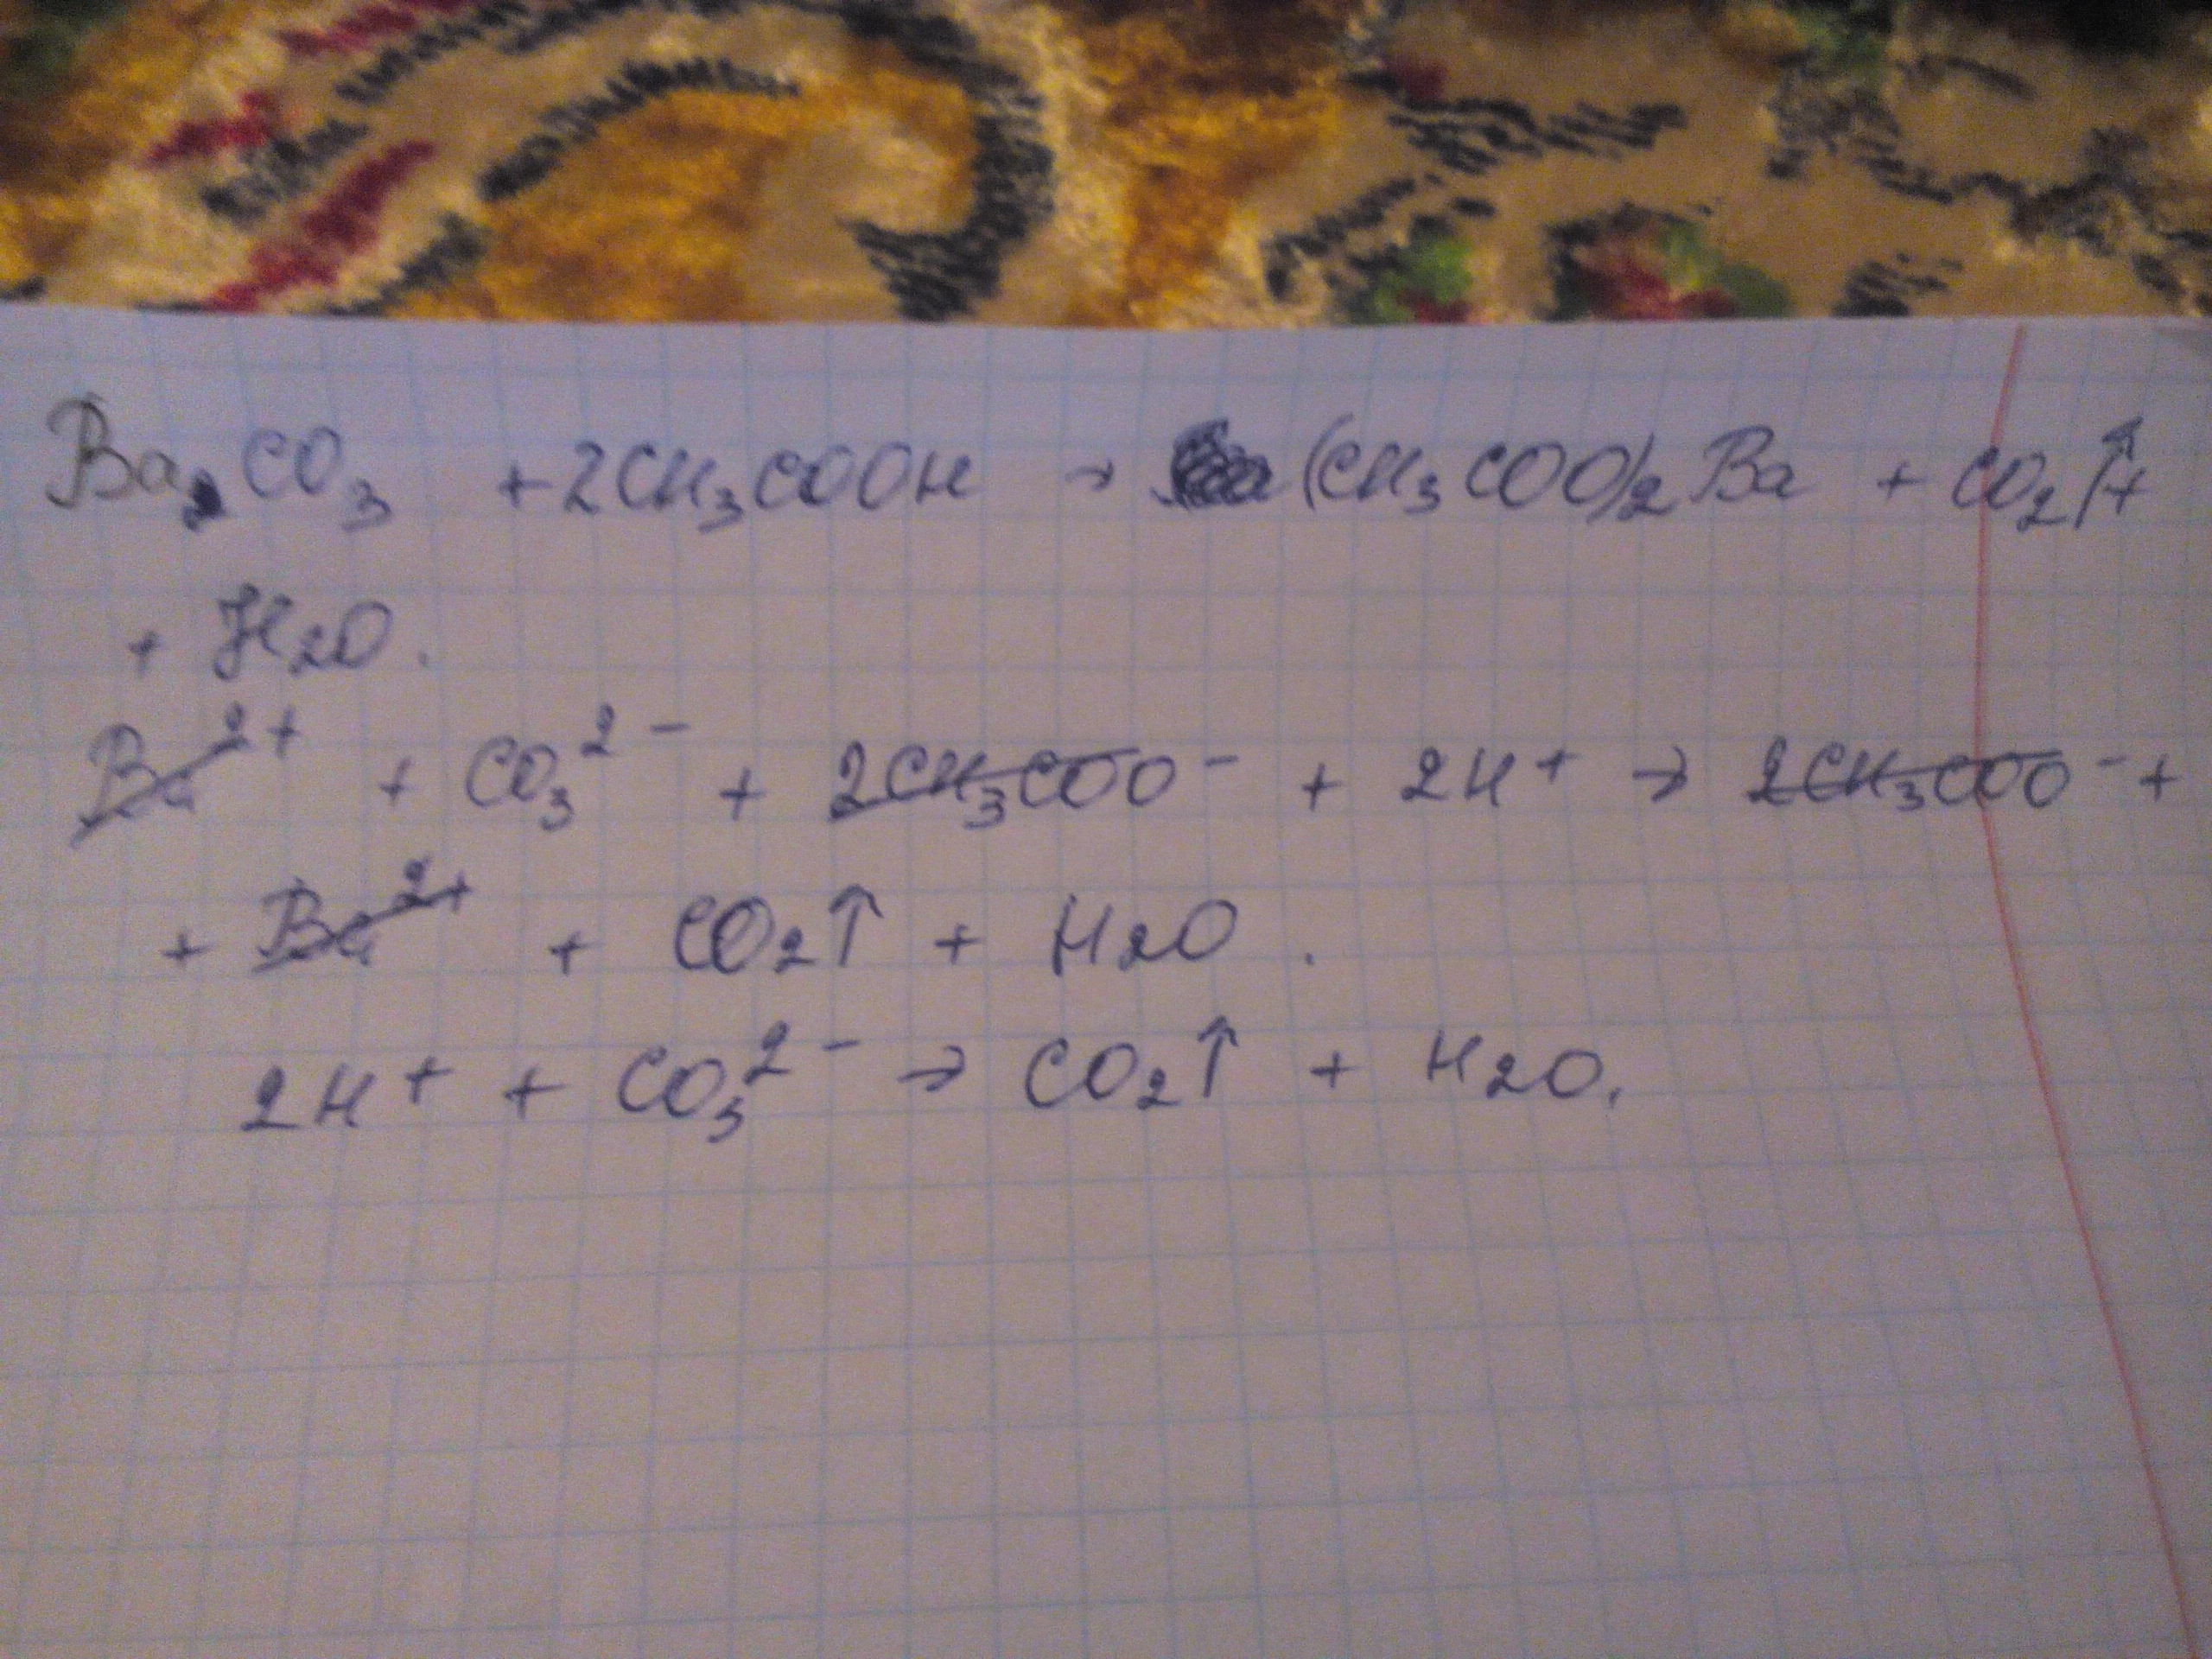 BaCO₃ + 2CH₃COOH → (CH₃COO)₂Ba + CO₂↑ +
+ H₂O.
Ba²⁺ + CO₃²⁻ + 2CH₃COO⁻ + 2H⁺ → 2CH₃COO⁻ +
+ Ba²⁺ + CO₂↑ + H₂O.
2H⁺ + CO₃²⁻ → CO₂↑ + H₂O.